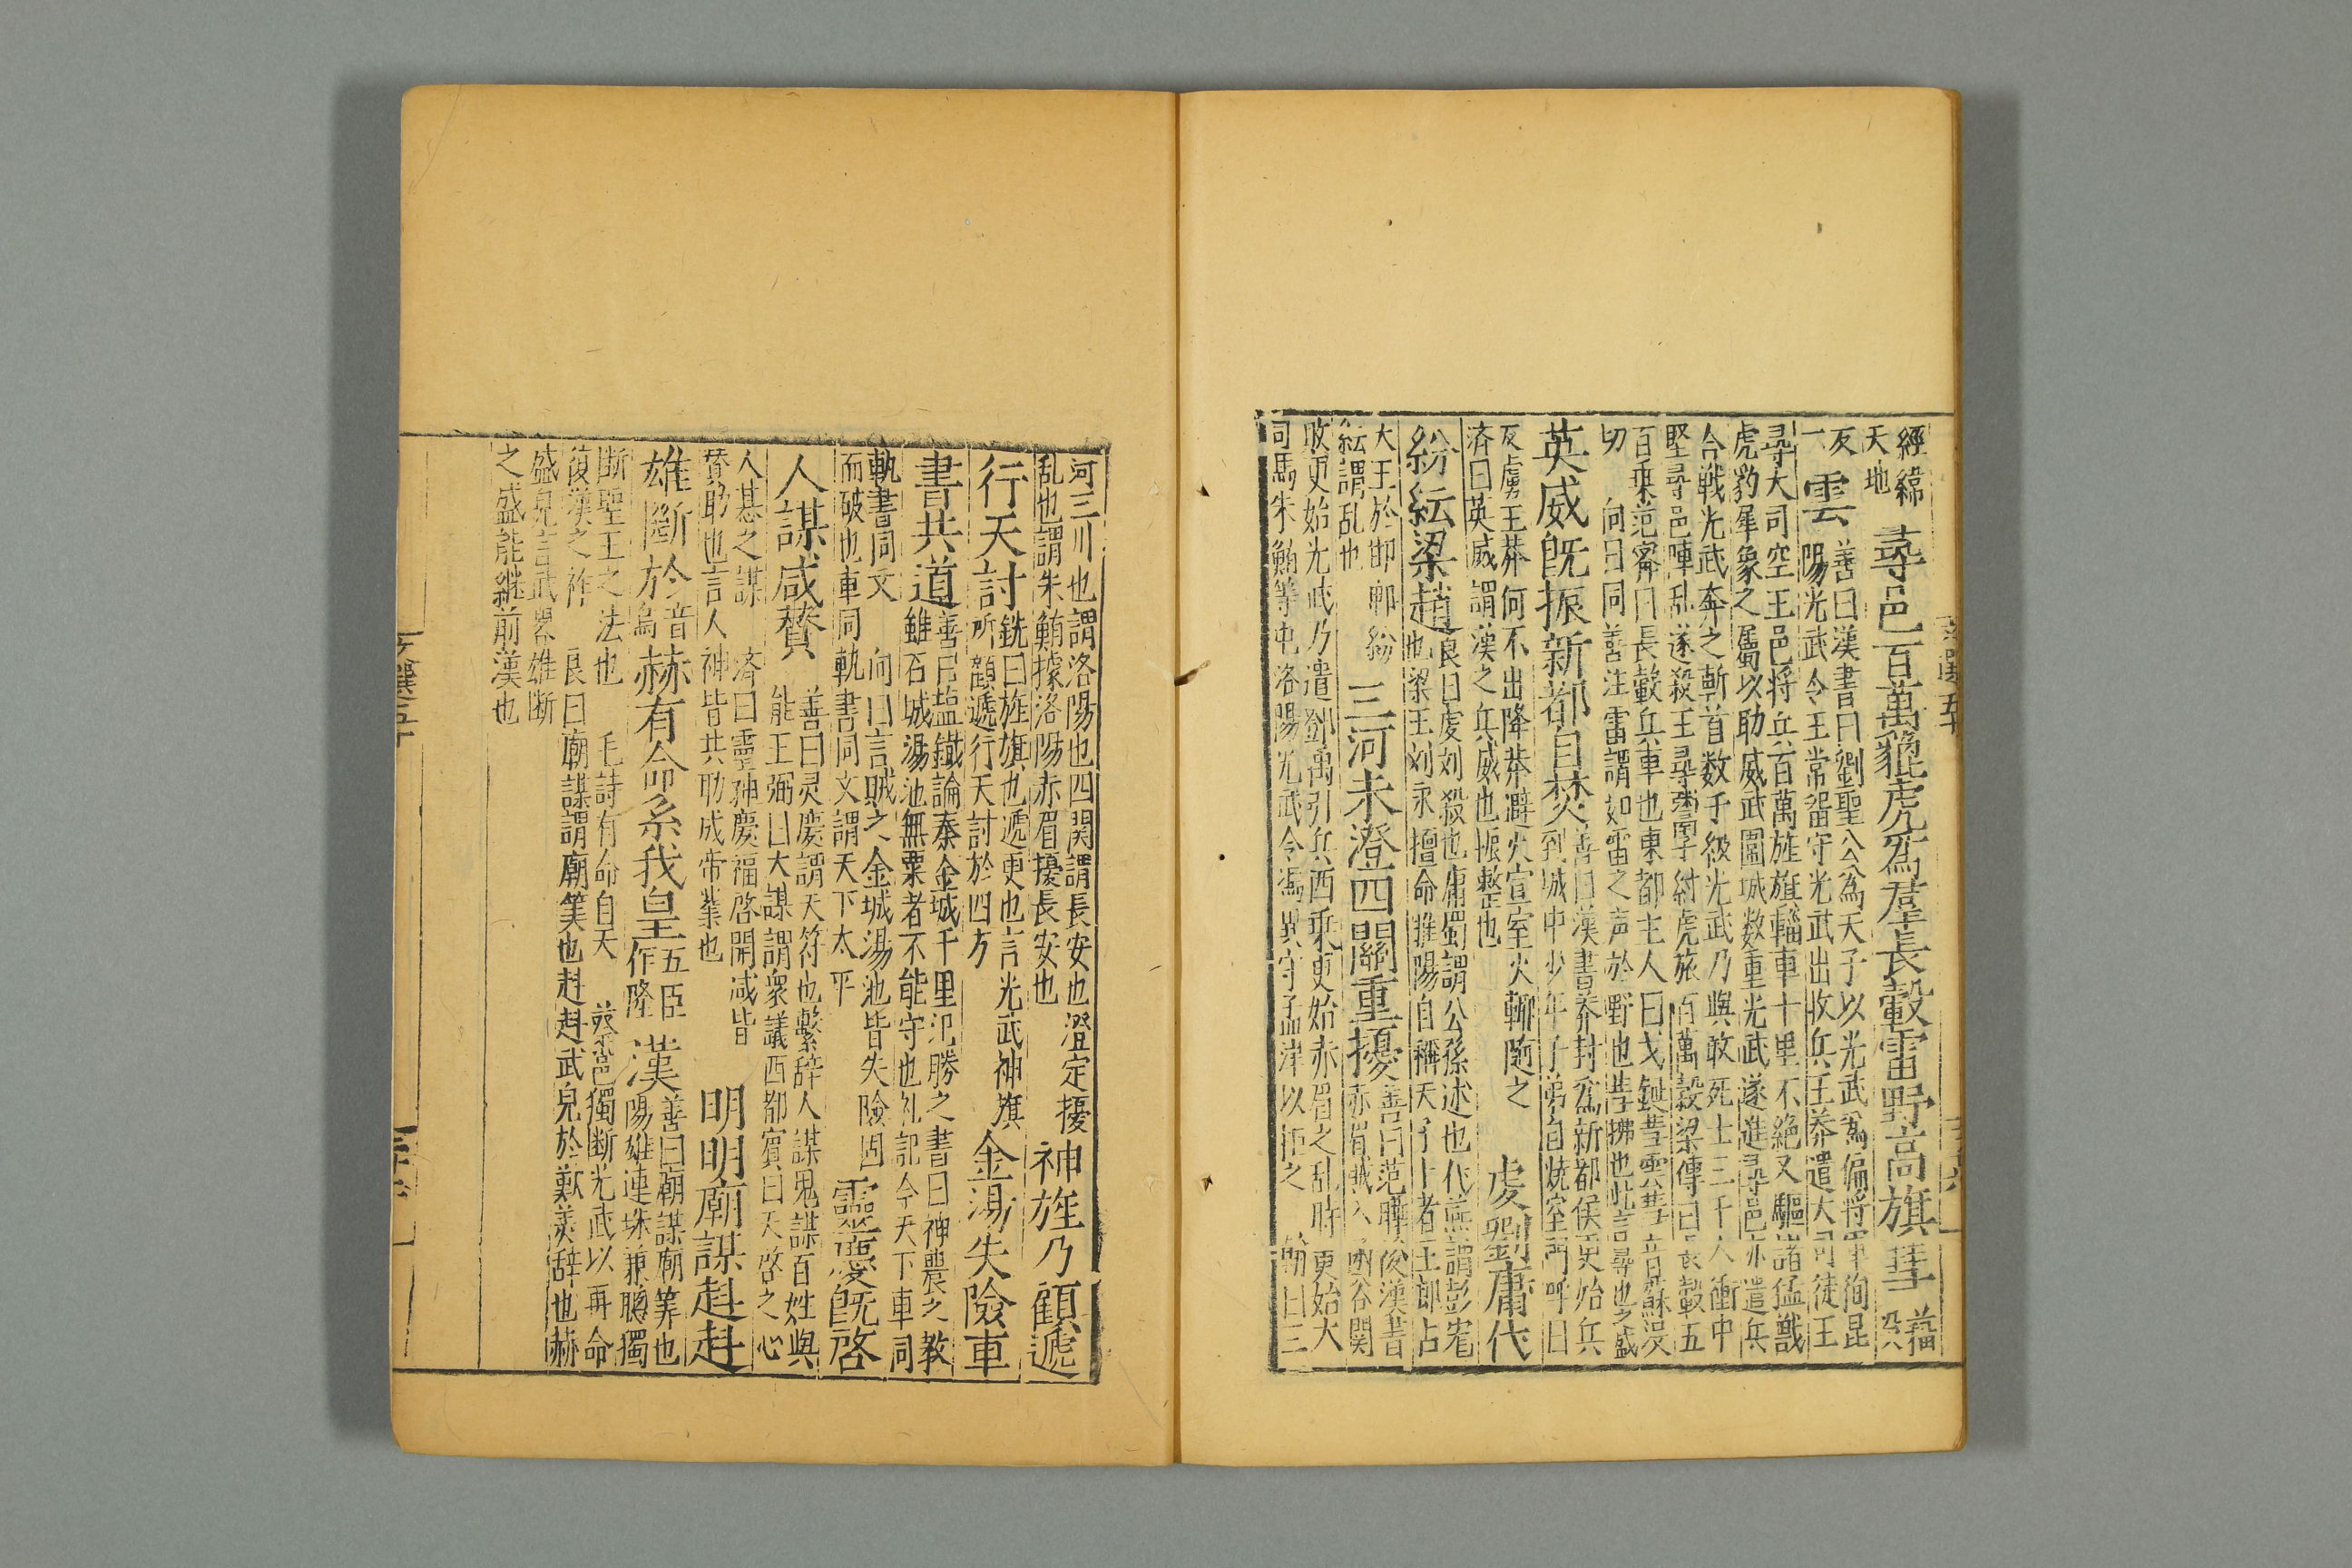 經緯
天地
尋邑百萬貔虎爲羣長轂雷野高旗彗
雲
善曰漢書曰劉聖公爲天子以光武爲偏將軍徇昆
陽光武令王常留守光武出收兵王莽遣大司徒王
尋大司空王邑将兵百萬旌旗輜車十里不絕又驅諸猛獸
虎豹犀象之屬以助威武圍城数重光武遂進尋邑亦遣兵
合戦光武奔之斬首数千級光武乃與敢死士三千人衝中
堅尋邑陣乱遂殺王尋
百萬穀梁傳曰長轂五
百乗范甯曰長轂兵車也東都主人曰戈鋋彗雲
切 向曰同善注雷謂如雷之声於野也彗拂也此言尋邑之盛
英威旣振新都自焚
善曰漢書莽封爲新都侯更始兵
到城中少年子弟自燒室門呼曰
反虜王莽何不出降莽避火宣室火輙随之
済曰英威謂漢之兵威也振整也
虔劉庸代
紛紜梁趙
良曰虔刘殺也庸蜀謂公孫述也代燕謂彭寵
也梁王刘永擅命睢陽自稱天子卜者王郎占
大王於邯鄲紛
紜謂乱也
三河未澄四關重擾
善曰范曄後漢書
赤眉賊入函谷關
攻更始光武乃遣鄧禹引兵西乗更始赤眉之乱時更始大
司馬朱鮪等屯洛陽光武令馮異守孟津以拒之 翰曰三
河三川也謂洛陽也四関謂長安也澄定擾
乱也謂朱鮪據洛陽赤眉擾長安也
神旌乃顧遞
行天討
銑曰旌旗也遞更也言光武神旗
所顧遞行天討於四方
金湯失險車
書共道
善曰塩鐵論秦金城千里氾勝之書曰神農之教
雖石城湯池無粟者不能守也礼記今天下車同
軌書同文 向曰言賊之金城湯池皆失險固
而破也車同軌書同文謂天下太平
靈慶旣啓
人謀咸贊
善曰灵慶謂天符也繫辞人謀鬼謀百姓與
能王弼曰大謀謂衆議西都賓曰天啓之心
人惎之謀 済曰靈神慶福啓開咸皆
賛助也言人神皆共助成帝業也
明明廟謀赳赳
雄斷於
音
烏
赫有命系我皇
五臣
作隆
漢
善曰廟謀廟筭也
陽雄連珠兼聽獨
断聖王之法也 毛詩有命自天 蔡邕獨断光武以再命
復漢之祚 良曰廟謀謂廟筭也赳赳武皃於歎美辞也赫
盛皃言武畧雄断
之盛能継前漢也